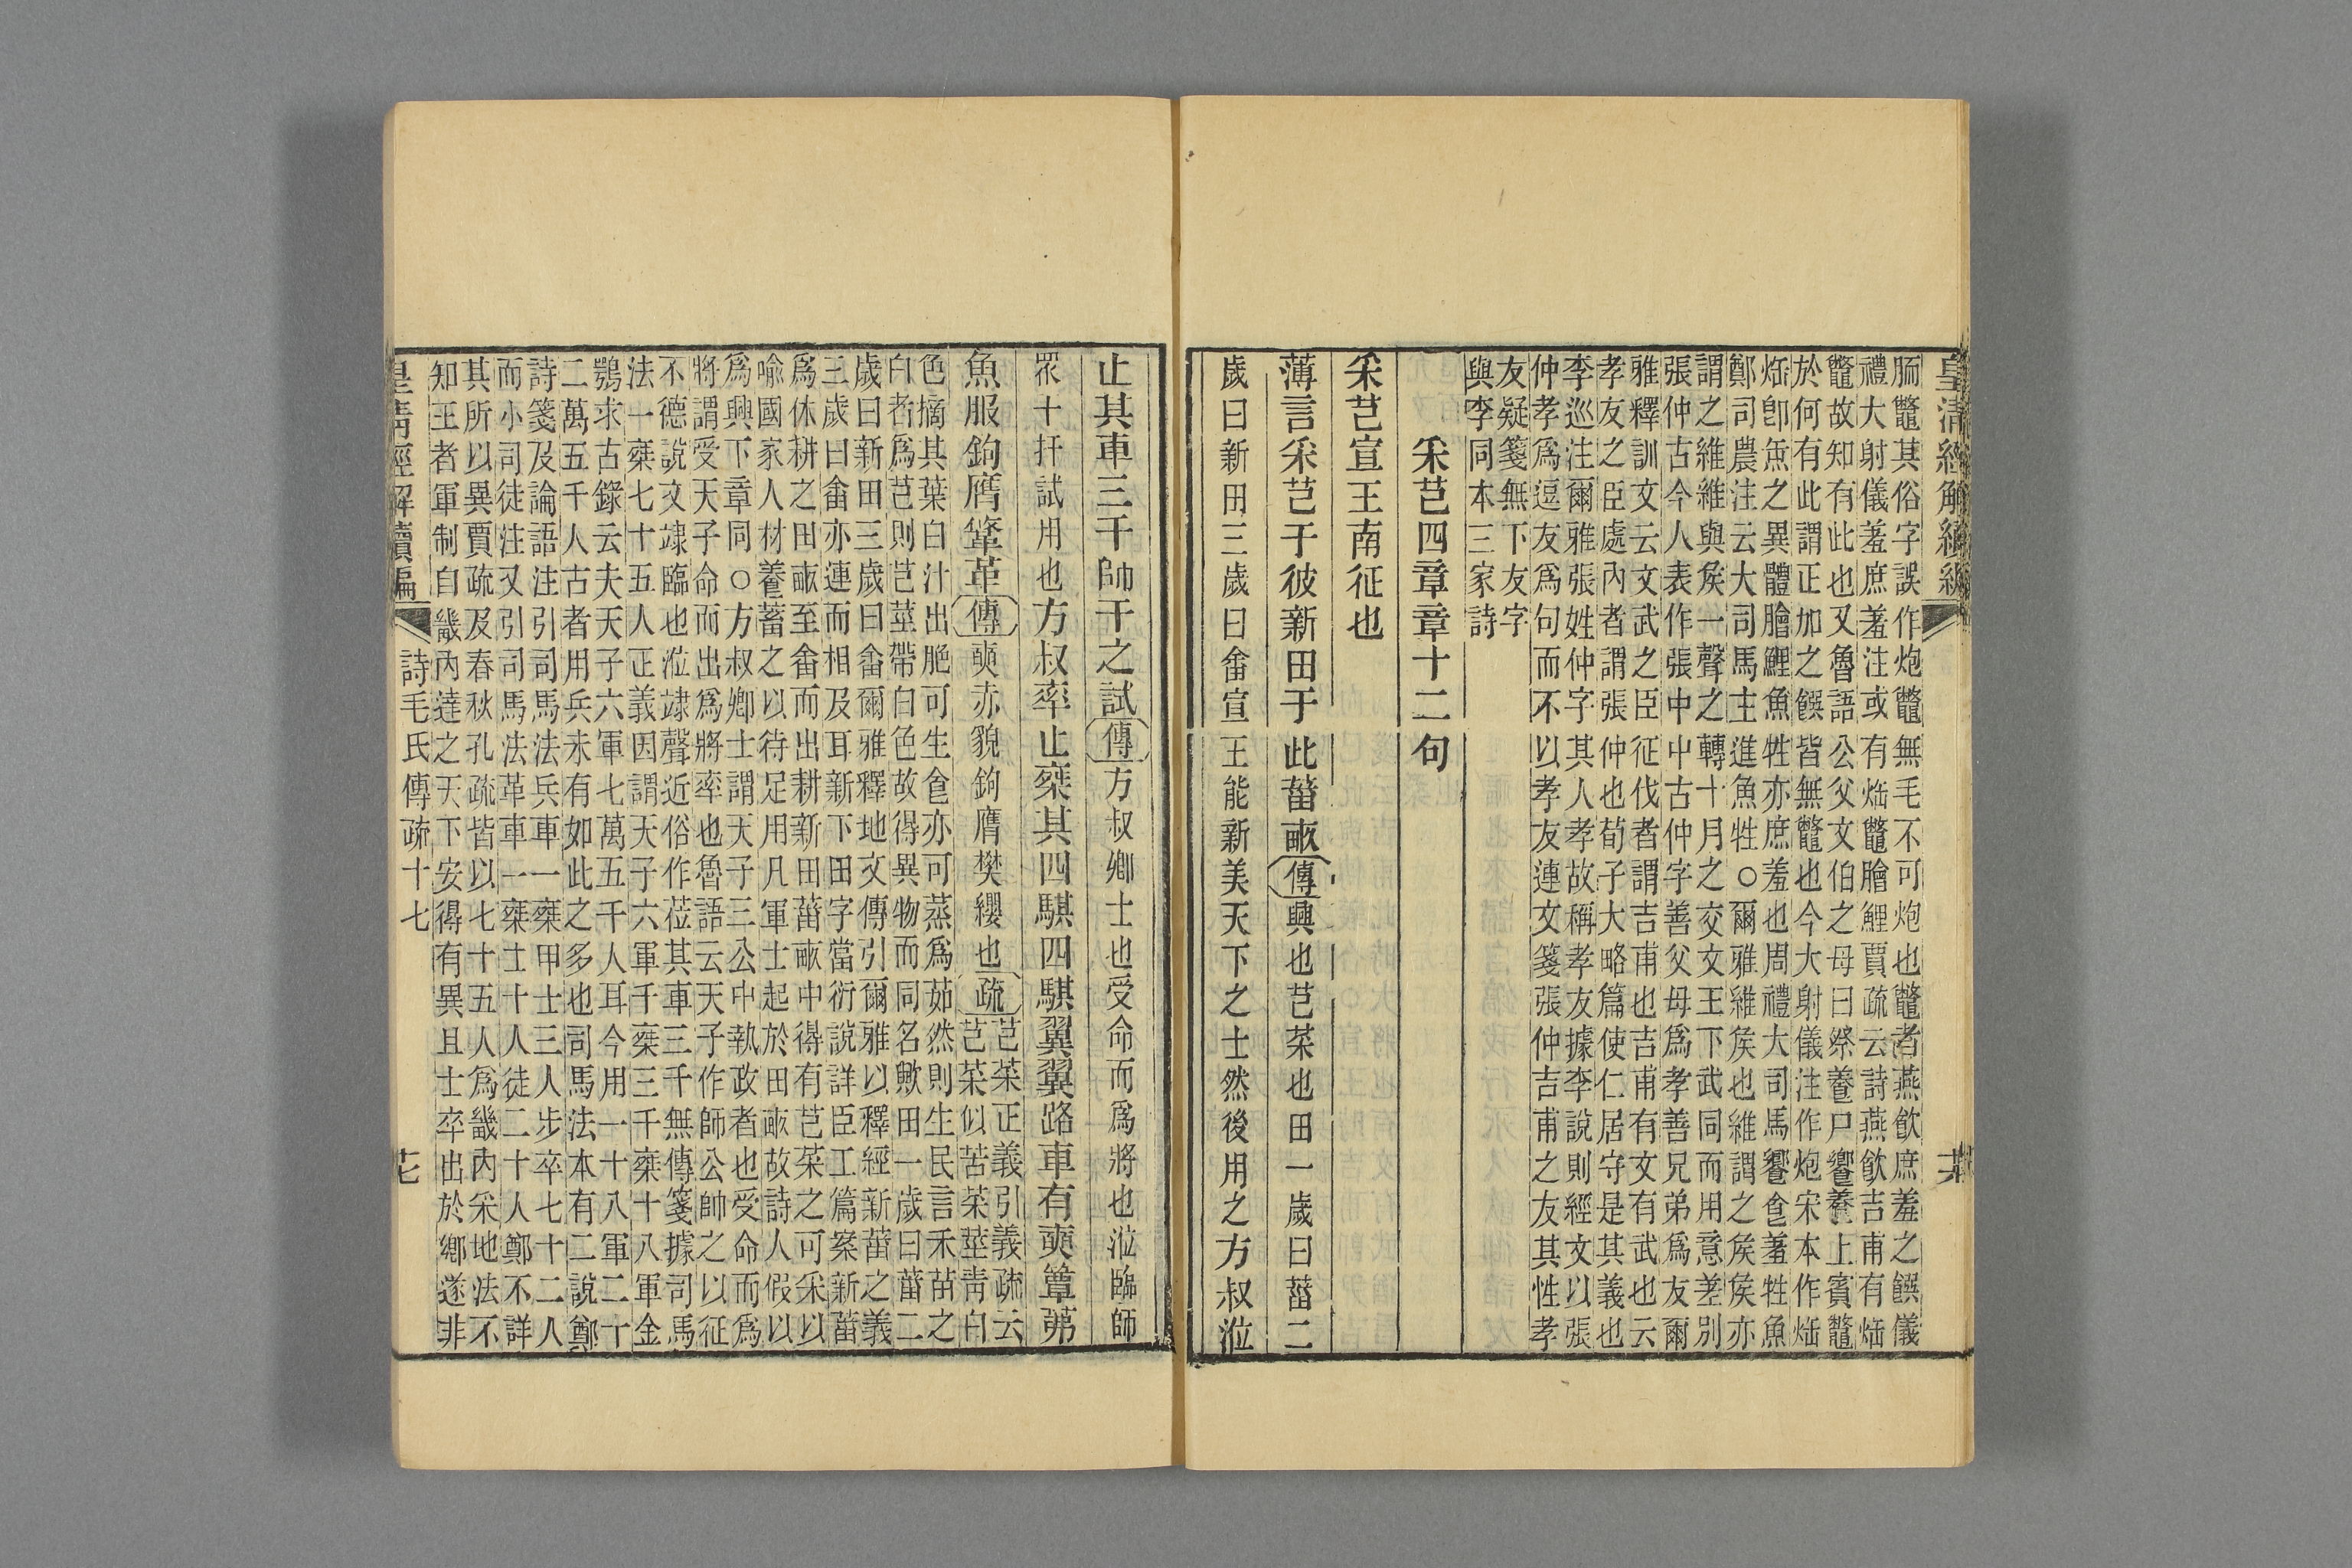 皇清經解續編
胹鼈其俗字誤作炮鼈無毛不可炮也鼈者燕飮庶羞之饌儀
禮大射儀羞庶羞注或有炰鼈膾鯉賈疏云詩燕飮吉甫有炰
鼈故知有此也又魯語公父文伯之母曰祭養尸饗養上賓鼈
於何有此謂正加之饌皆無鼈也今大射儀注作炮宋本作炰
炰卽缹之異體膾鯉魚牲亦庶羞也周禮大司馬饗食羞牲魚
鄭司農注云大司馬主進魚牲○爾雅維矦也維謂之矦矦亦
謂之維維與矦一聲之轉十月之交文王下武同而用意差別
張仲古今人表作張中中古仲字善父母爲孝善兄弟爲友爾
雅釋訓文云文武之臣征伐者謂吉甫也吉甫有文有武也云
孝友之臣處內者謂張仲也荀子大略篇使仁居守是其義也
李巡注爾雅張姓仲字其人孝故稱孝友據李說則經文以張
仲孝爲逗友爲句而不以孝友連文箋張仲吉甫之友其性孝
友疑箋無下友字
與李同本三家詩
采芑四章章十二句
采芑宣王南征也
薄言采芑于彼新田于此菑畝傳興也芑菜也田一歲曰菑二
歲曰新田三歲曰畬宣王能新美天下之士然後用之方叔涖
止其車三千師干之試傳方叔卿士也受命而爲將也涖臨師
眾干扞試用也方叔率止乘其四騏四騏翼翼路車有奭簟茀
魚服鉤膺鞗革傳奭赤貌鉤膺樊纓也疏芑菜正義引義疏云
芑菜似苦菜莖青白
色摘其葉白汁出脃可生食亦可蒸爲茹然則生民言禾苗之
白者爲芑則芑莖帶白色故得異物而同名歟田一歲曰菑二
歲曰新田三歲曰畬爾雅釋地文傳引爾雅以釋經新菑之義
三歲曰畬亦連而相及耳新下田字當衍說詳臣工篇案新菑
爲休耕之田畝至畬而出耕新田菑畝中得有芑菜之可采以
喻國家人材養蓄之以待足用凡軍士起於田畝故詩人假以
爲興下章同○方叔卿士謂天子三公中執政者也受命而爲
將謂受天子命而出爲將率也魯語云天子作師公帥之以征
不德說文䇐臨也涖䇐聲近俗作莅其車三千無傳箋據司馬
法一乘七十五人正義因謂天子六軍千乘三千乘十八軍金
鶚求古錄云夫天子六軍七萬五千人耳今用一十八軍二十
二萬五千人古者用兵未有如此之多也司馬法本有二說鄭
詩箋及論語注引司馬法兵車一乘甲士三人步卒七十二人
而小司徒注又引司馬法革車一乘士十人徒二十人鄭不詳
其所以異賈疏及春秋孔疏皆以七十五人爲畿內采地法不
知王者軍制自畿內達之天下安得有異且士卒出於鄉遂非
皇清經解續編 詩毛氏傳疏十七